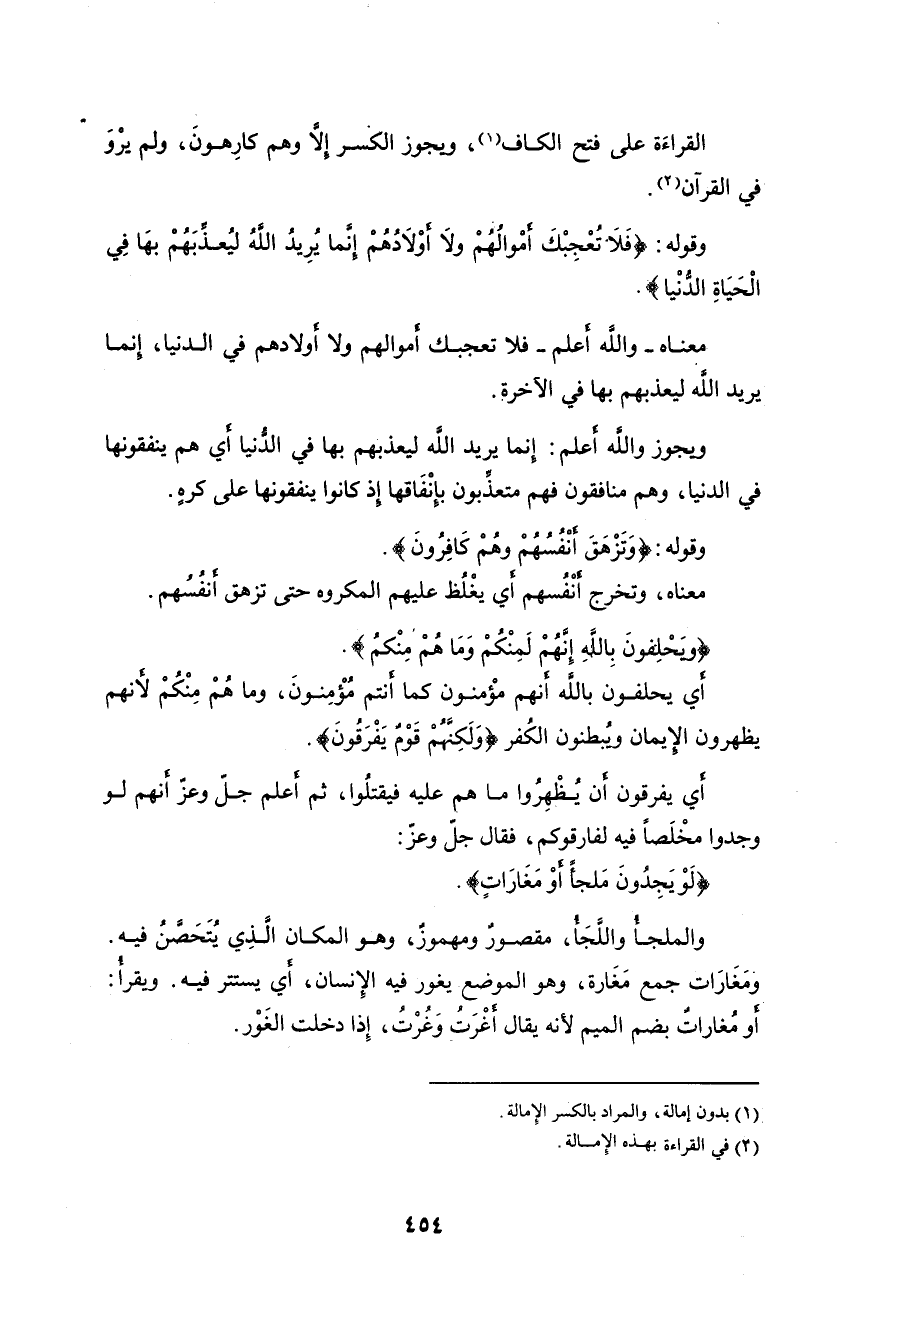 القراءَة على فتح الكاف(١)، ويجوز الكسر إِلَّا وهم كارِهونَ، ولم يرْوَ
في القرآن(٢).
وقوله: ﴿فَلَا تُعْجِبْكَ أَمْوالُهُمْ ولَا أَوْلَادُهُمْ إِنَّما يُرِيدُ اللَّهُ ليُعذِّبَهُمْ بهَا فِي
الْحَيَاةِ الدُّنْيا﴾.
معناه ـ واللَّه أَعلم ـ فلا تعجبك أَموالهم ولا أَولادهم في الدنيا، إِنما
يريد اللَّه ليعذبهم بها في الآخرةِ.
ويجوز واللَّه أَعلم: إِنما يريد اللَّه ليعذبهم بها في الدُّنيا أَي هم ينفقونها
في الدنيا، وهم منافقون فهم متعذِّبون بإِنْفَاقها إِذ كانوا ينفقونها على كرهٍ.
وقوله: ﴿وَتَزْهَقَ أَنْفُسُهُمْ وهُمْ كَافِرُونَ﴾.
معناه، وتخرج أَنْفُسهم أَي يغْلُظ عليهم المكروه حتى تزهق أَنفُسُهم.
﴿ويَحْلِفونَ بِاللَّهِ إِنَّهُمْ لَمِنْكُمْ وَمَا هُمْ مِنْكمُ﴾.
أَي يحلفون باللَّه أَنهم مؤمنون كما أَنتم مُؤْمِنونَ، وما هُمْ مِنْكُمْ لأَنهم
يظهرون الإِيمان ويُبطنون الكُفر ﴿وَلَكِنَّهُمْ قَوْمٌ يَفْرَقُونَ﴾.
أَي يفرقون أَن يُظْهِرُوا ما هم عليه فيقتلُوا، ثم أَعلم جلّ وعزّ أَنهم لو
وجدوا مخْلَصاً فيه لفارقوكم، فقال جلّ وعزّ:
﴿لَوْ يَجِدُونَ مَلجأً أَوْ مَغَارَاتٍ﴾.
والملجأُ واللَّجَأُ، مقصورٌ ومهموزٌ، وهو المكان الَّذِي يُتَحَصَّنُ فيه.
ومَغَارَات جمع مَغَارة، وهو الموضع يغور فيه الإِنسان، أَي يستتر فيه. ويقرأُ:
أَو مُغاراتٌ بضم الميم لأَنه يقال أَغَرَتُ وَغُرْتُ، إِذا دخلت الغَوْر.
(١) بدون إمالة، والمراد بالكسر الإِمالة.
(٢) في القراءة بهذه الإِمالة.
٤٥٤